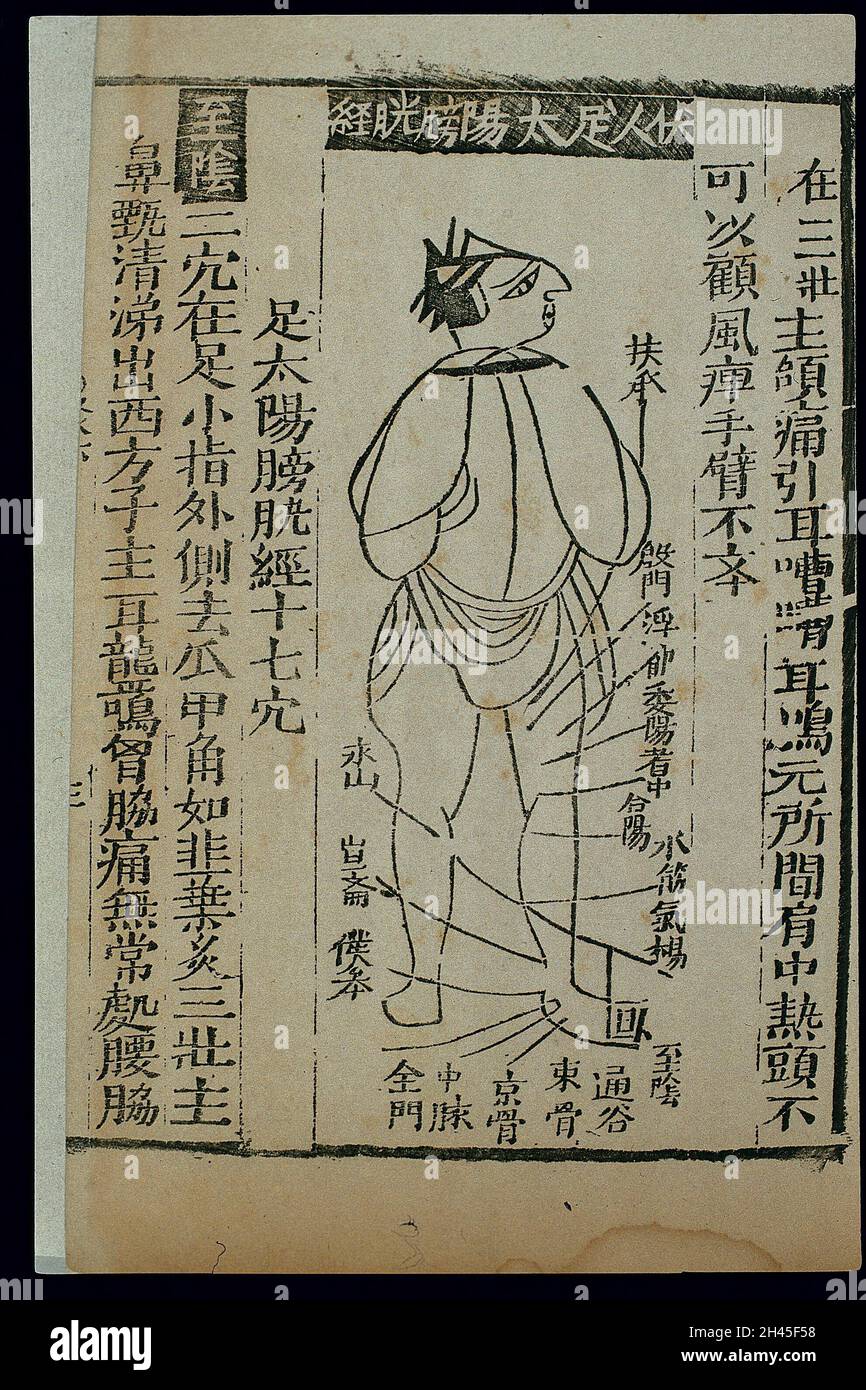 在三壯主頷痛引耳嘈嘈耳鳴元所間有中熱頭不
可以顧風痺手臂不
伏人足太陽膀胱經
扶承
殷門
浮郄
委陽
委中
合陽
承筋
承山
崑崙
僕參
金門
申脉
京骨
束骨
通谷
至陰
足太陽膀胱經十七穴
至陰二穴在足小指外側去爪甲角如韭葉灸三壯主
鼻鼽清涕出西方子主耳龍鳴胷脇痛無常處腰脇
alamy
Image ID: 2H45F58
www.alamy.com